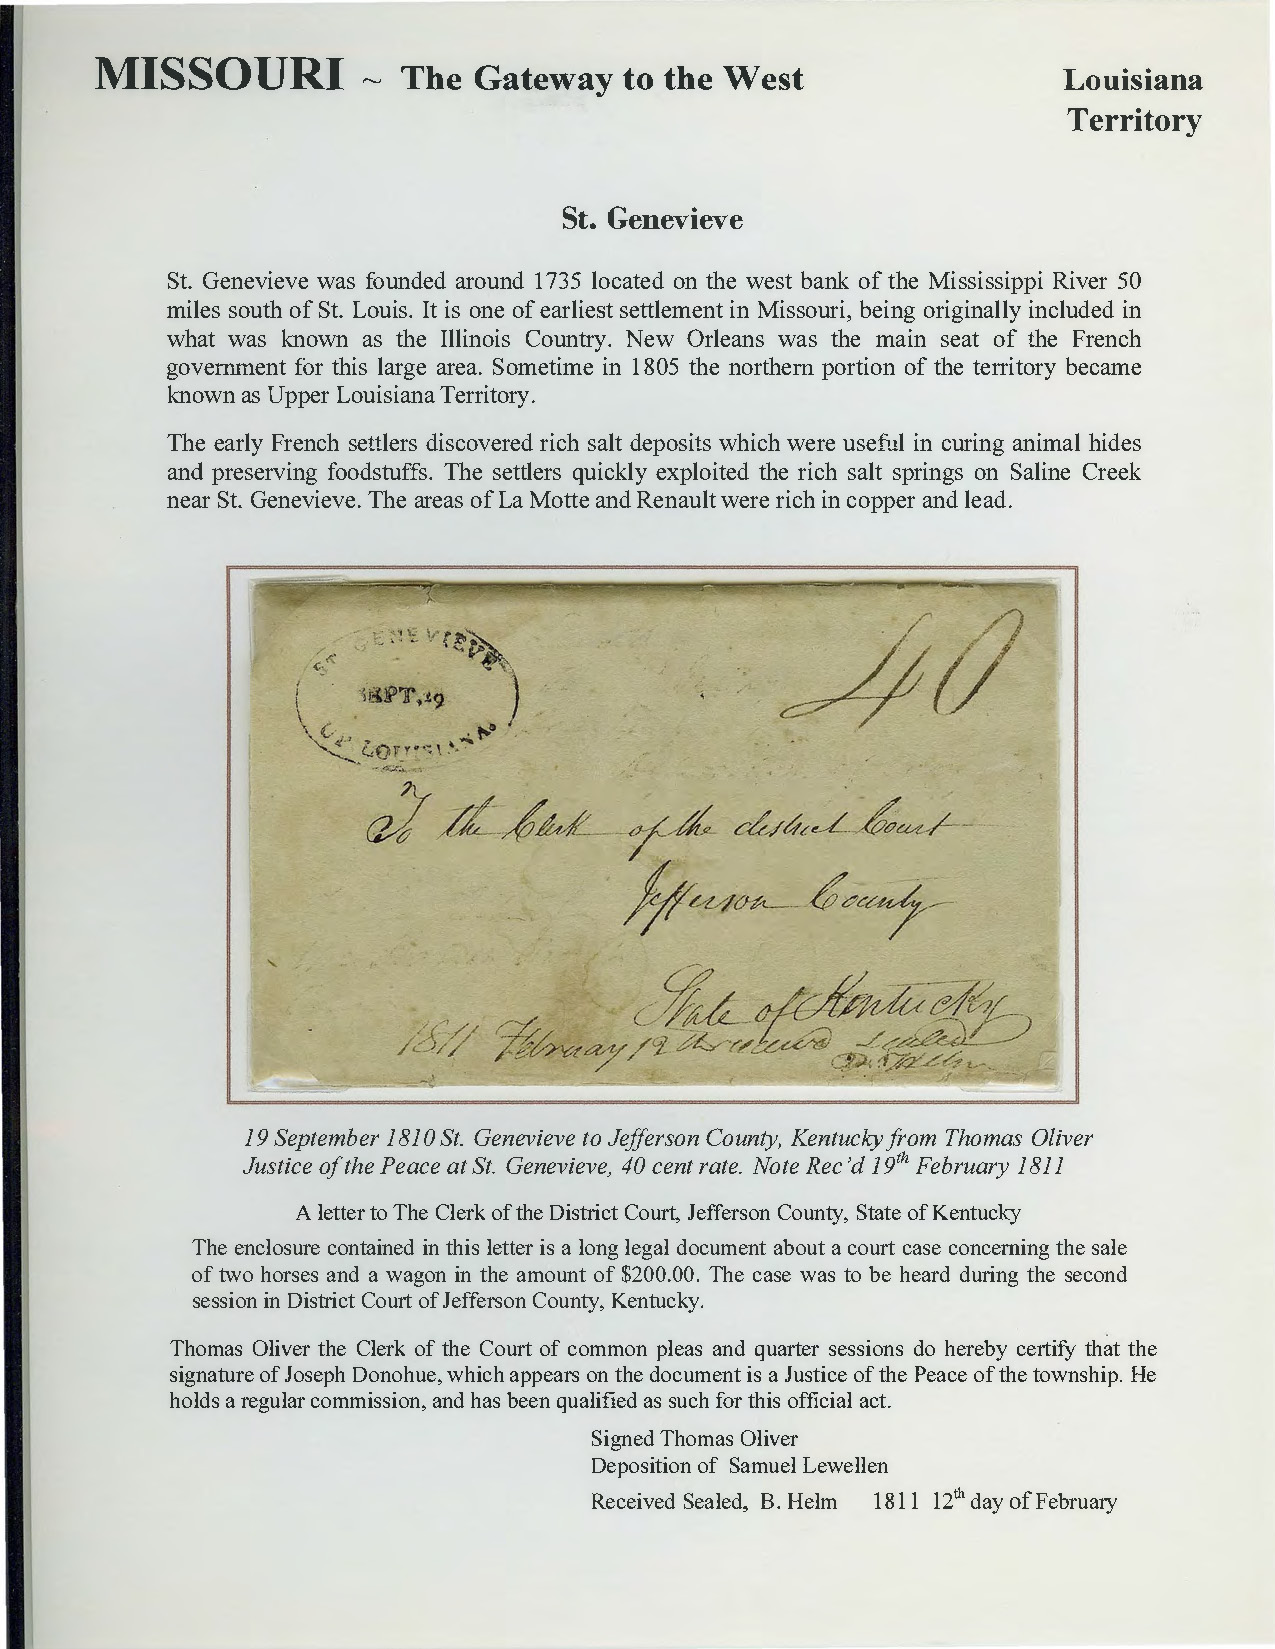 MISSOURI ~ The Gateway to the West
Louisiana
Territory
St. Genevieve
St. Genevieve was founded around 1735 located on the west bank of the Mississippi River 50
miles south of St. Louis. It is one of earliest settlement in Missouri, being originally included in
what was known as the Illinois Country. New Orleans was the main seat of the French
government for this large area. Sometime in 1805 the northern portion of the territory became
known as Upper Louisiana Territory.
The early French settlers discovered rich salt deposits which were useful in curing animal hides
and preserving foodstuffs. The settlers quickly exploited the rich salt springs on Saline Creek
near St. Genevieve. The areas of La Motte and Renault were rich in copper and lead.
ST. GENEVIEVE
SEPT, 19
UP. LOUISIANA.
40
To the Clerk of the district Court
Jefferson County
State of Kentucky
1811 February 12th received Sealed
B. Helm
19 September 1810 St. Genevieve to Jefferson County, Kentucky from Thomas Oliver
Justice of the Peace at St. Genevieve, 40 cent rate. Note Rec'd 19th February 1811
A letter to The Clerk of the District Court, Jefferson County, State of Kentucky
The enclosure contained in this letter is a long legal document about a court case concerning the sale
of two horses and a wagon in the amount of $200.00. The case was to be heard during the second
session in District Court of Jefferson County, Kentucky.
Thomas Oliver the Clerk of the Court of common pleas and quarter sessions do hereby certify that the
signature of Joseph Donohue, which appears on the document is a Justice of the Peace of the township. He
holds a regular commission, and has been qualified as such for this official act.
Signed Thomas Oliver
Deposition of Samuel Lewellen
Received Sealed, B. Helm 1811 12th day of February